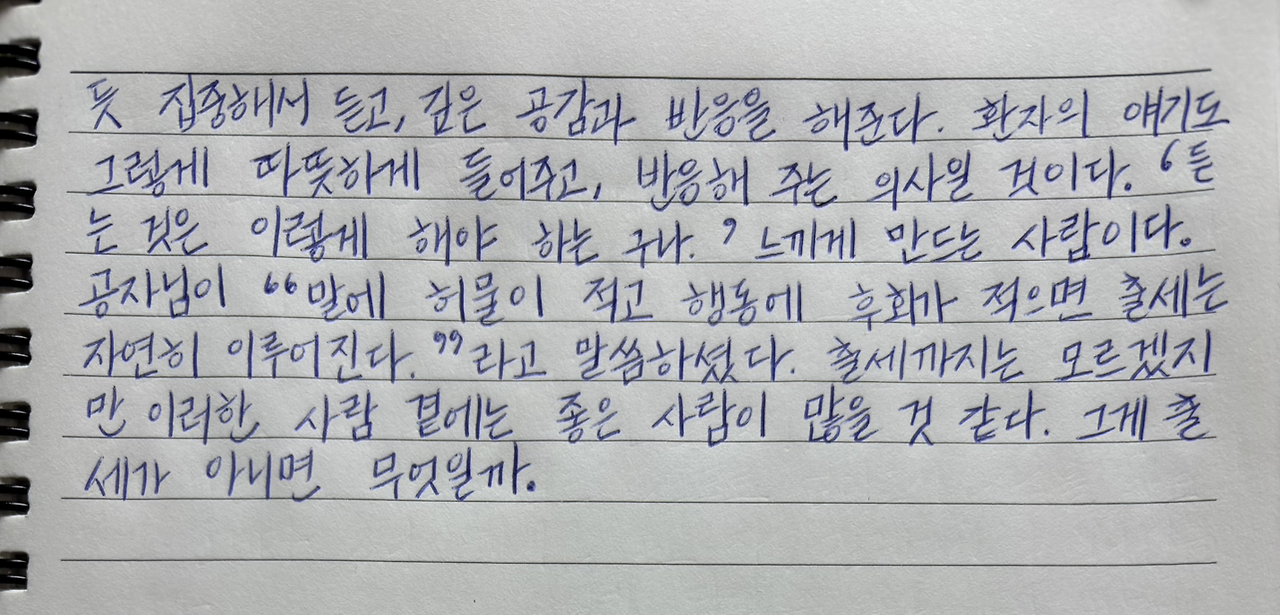 듯 집중해서 듣고, 깊은 공감과 반응을 해준다. 환자의 얘기도
그렇게 따뜻하게 들어주고, 반응해 주는 의사일 것이다. ‘듣
는 것은 이렇게 해야 하는 구나.’ 느끼게 만드는 사람이다.
공자님이 “말에 허물이 적고 행동에 후회가 적으면 출세는
자연히 이루어진다.”라고 말씀하셨다. 출세까지는 모르겠지
만 이러한 사람 곁에는 좋은 사람이 많을 것 같다. 그게 출
세가 아니면 무엇일까.